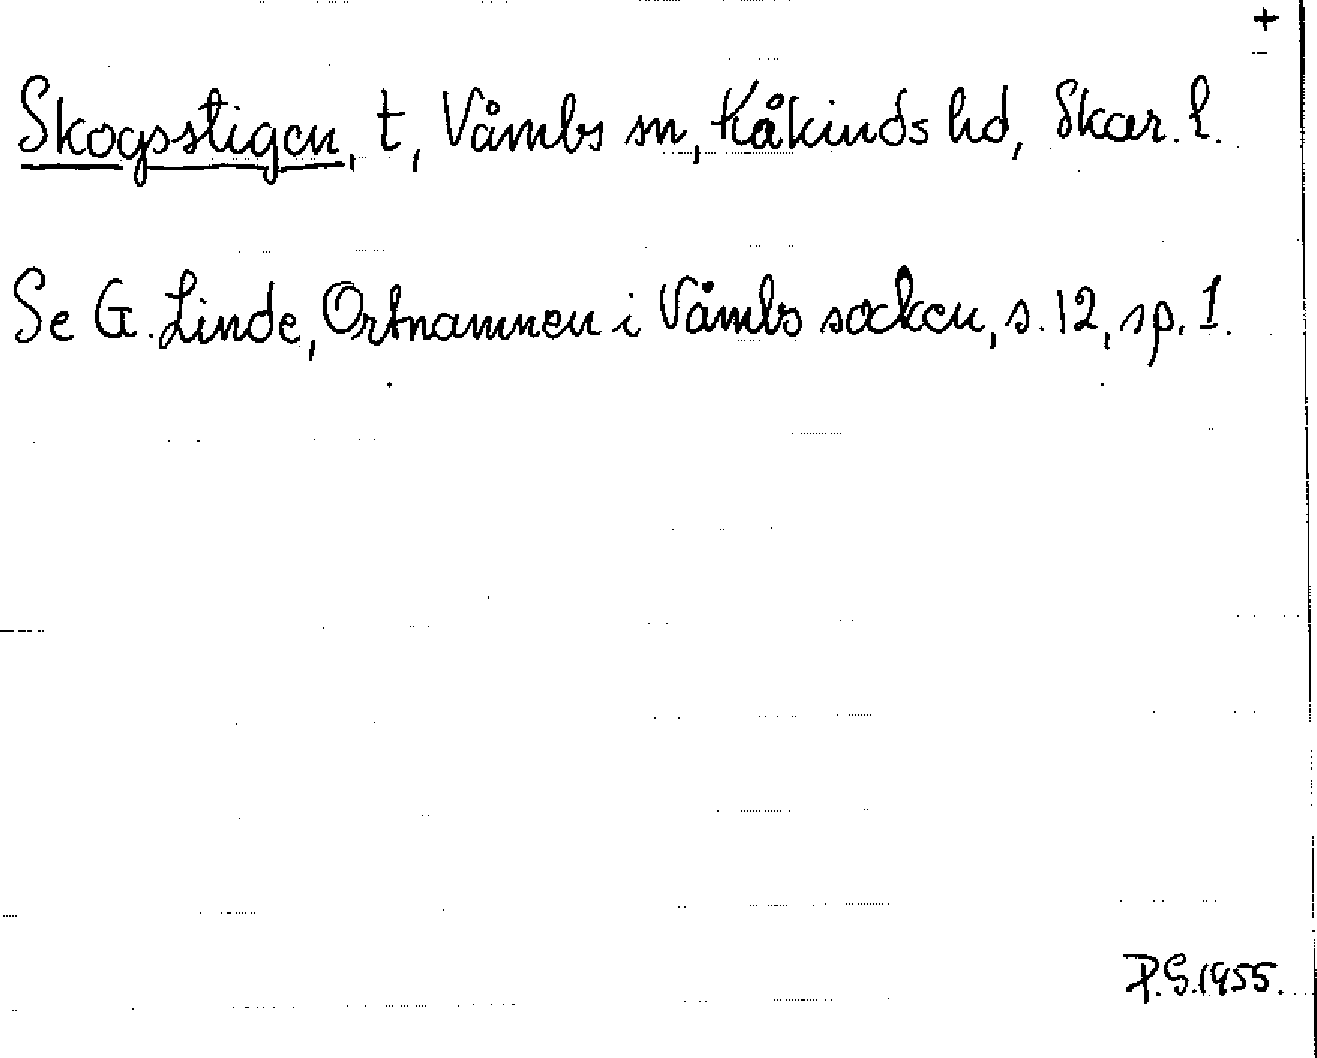 +
Skogsstigen, t, Våmbs sn, Kåkinds hd, Skar. l.
Se G. Linde, Ortnamnen i Våmbs socken, s. 12, sp. 1.
P.G.1955.